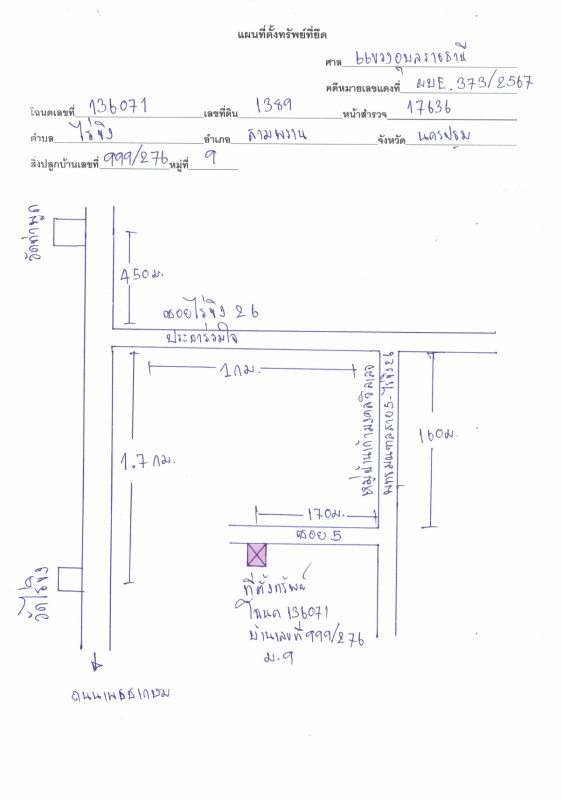 แผนที่ตั้งทรัพย์ที่ยึด
ศาล แขวงอุบลราชธานี
คดีหมายเลขแดงที่ ผบE.373/2567
โฉนดเลขที่ 136071 เลขที่ดิน 1389 หน้าสำรวจ 17636
ตำบล ไร่ขิง อำเภอ สามพราน จังหวัด นครปฐม
สิ่งปลูกบ้านเลขที่ 999/276 หมู่ที่ 9
วัดท่าพูด
450 ม.
ซอยไร่ขิง 26
ประชาร่วมใจ
1 กม.
หมู่บ้านเก้ามงคลวิลเลจ
พุทธมณฑลสาย 5-ไร่ขิง 26
160 ม.
1.7 กม.
170 ม.
ซอย 5
วัดไร่ขิง
ที่ตั้งทรัพย์
โฉนด 136071
บ้านเลขที่ 999/276
ม.9
ถนนเพชรเกษม